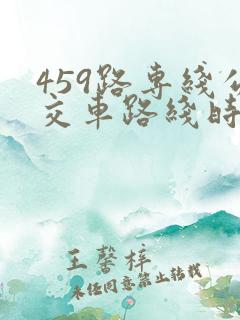 459路专綫公
交车路綫时
王馨梓
未经同意禁止转载